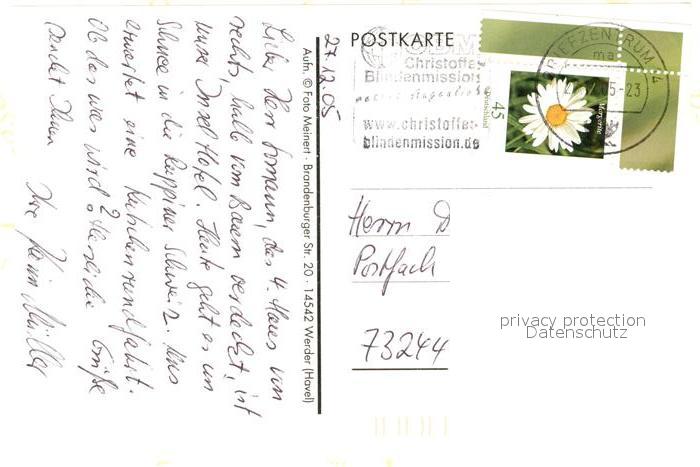 27.12.05
Lieber Herr
rechts, halb vom Baum verdeckt, ist
unser Insel Hotel. Heute geht es im
Schnee in die Ruppiner Schweiz. Uns
erwartet eine Kutschenrundfahrt.
Ob das was wird? Herzliche Grüße
sendet Ihnen
Ihre Karin Müller
Aufn. © Foto Meinert · Brandenburger Str. 20 · 14542 Werder (Havel)
POSTKARTE
Christoffel
Blindenmission
www.christoffel-
blindenmission.de
BRIEFZENTRUM
-23
45
Deutschland
Margerite
Herrn D
Postfach
73244
privacy protection
Datenschutz